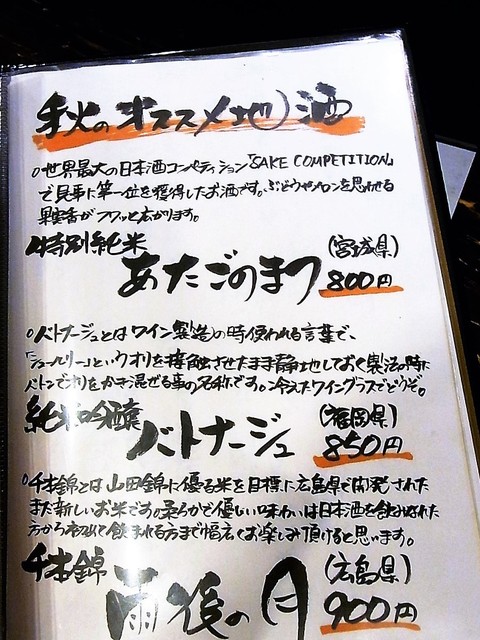 秋のオススメ地酒
○世界最大の日本酒コンペティション「SAKE COMPETITION」
で見事に第一位を獲得したお酒です。ぶどうやメロンを思わせる
果実香がフワッと広がります。
特別純米
あたごのまつ
(宮城県)
800円
○バトナージュとはワイン製造の時使われる言葉で、
「シュールリー」というオリを接触させたまま静地しておく製法の時に
バトンでオリをかき混ぜる事の名称です。冷えたワイングラスでどうぞ。
純米吟醸
バトナージュ
(福岡県)
850円
○千本錦とは山田錦に優る米を目標に広島県で開発された
まだ新しいお米です。柔らかで優しい味わいは日本酒を飲みなれた
方から初めて飲まれる方まで幅広くお楽しみ頂けると思います。
千本錦
雨後の月
(広島県)
900円